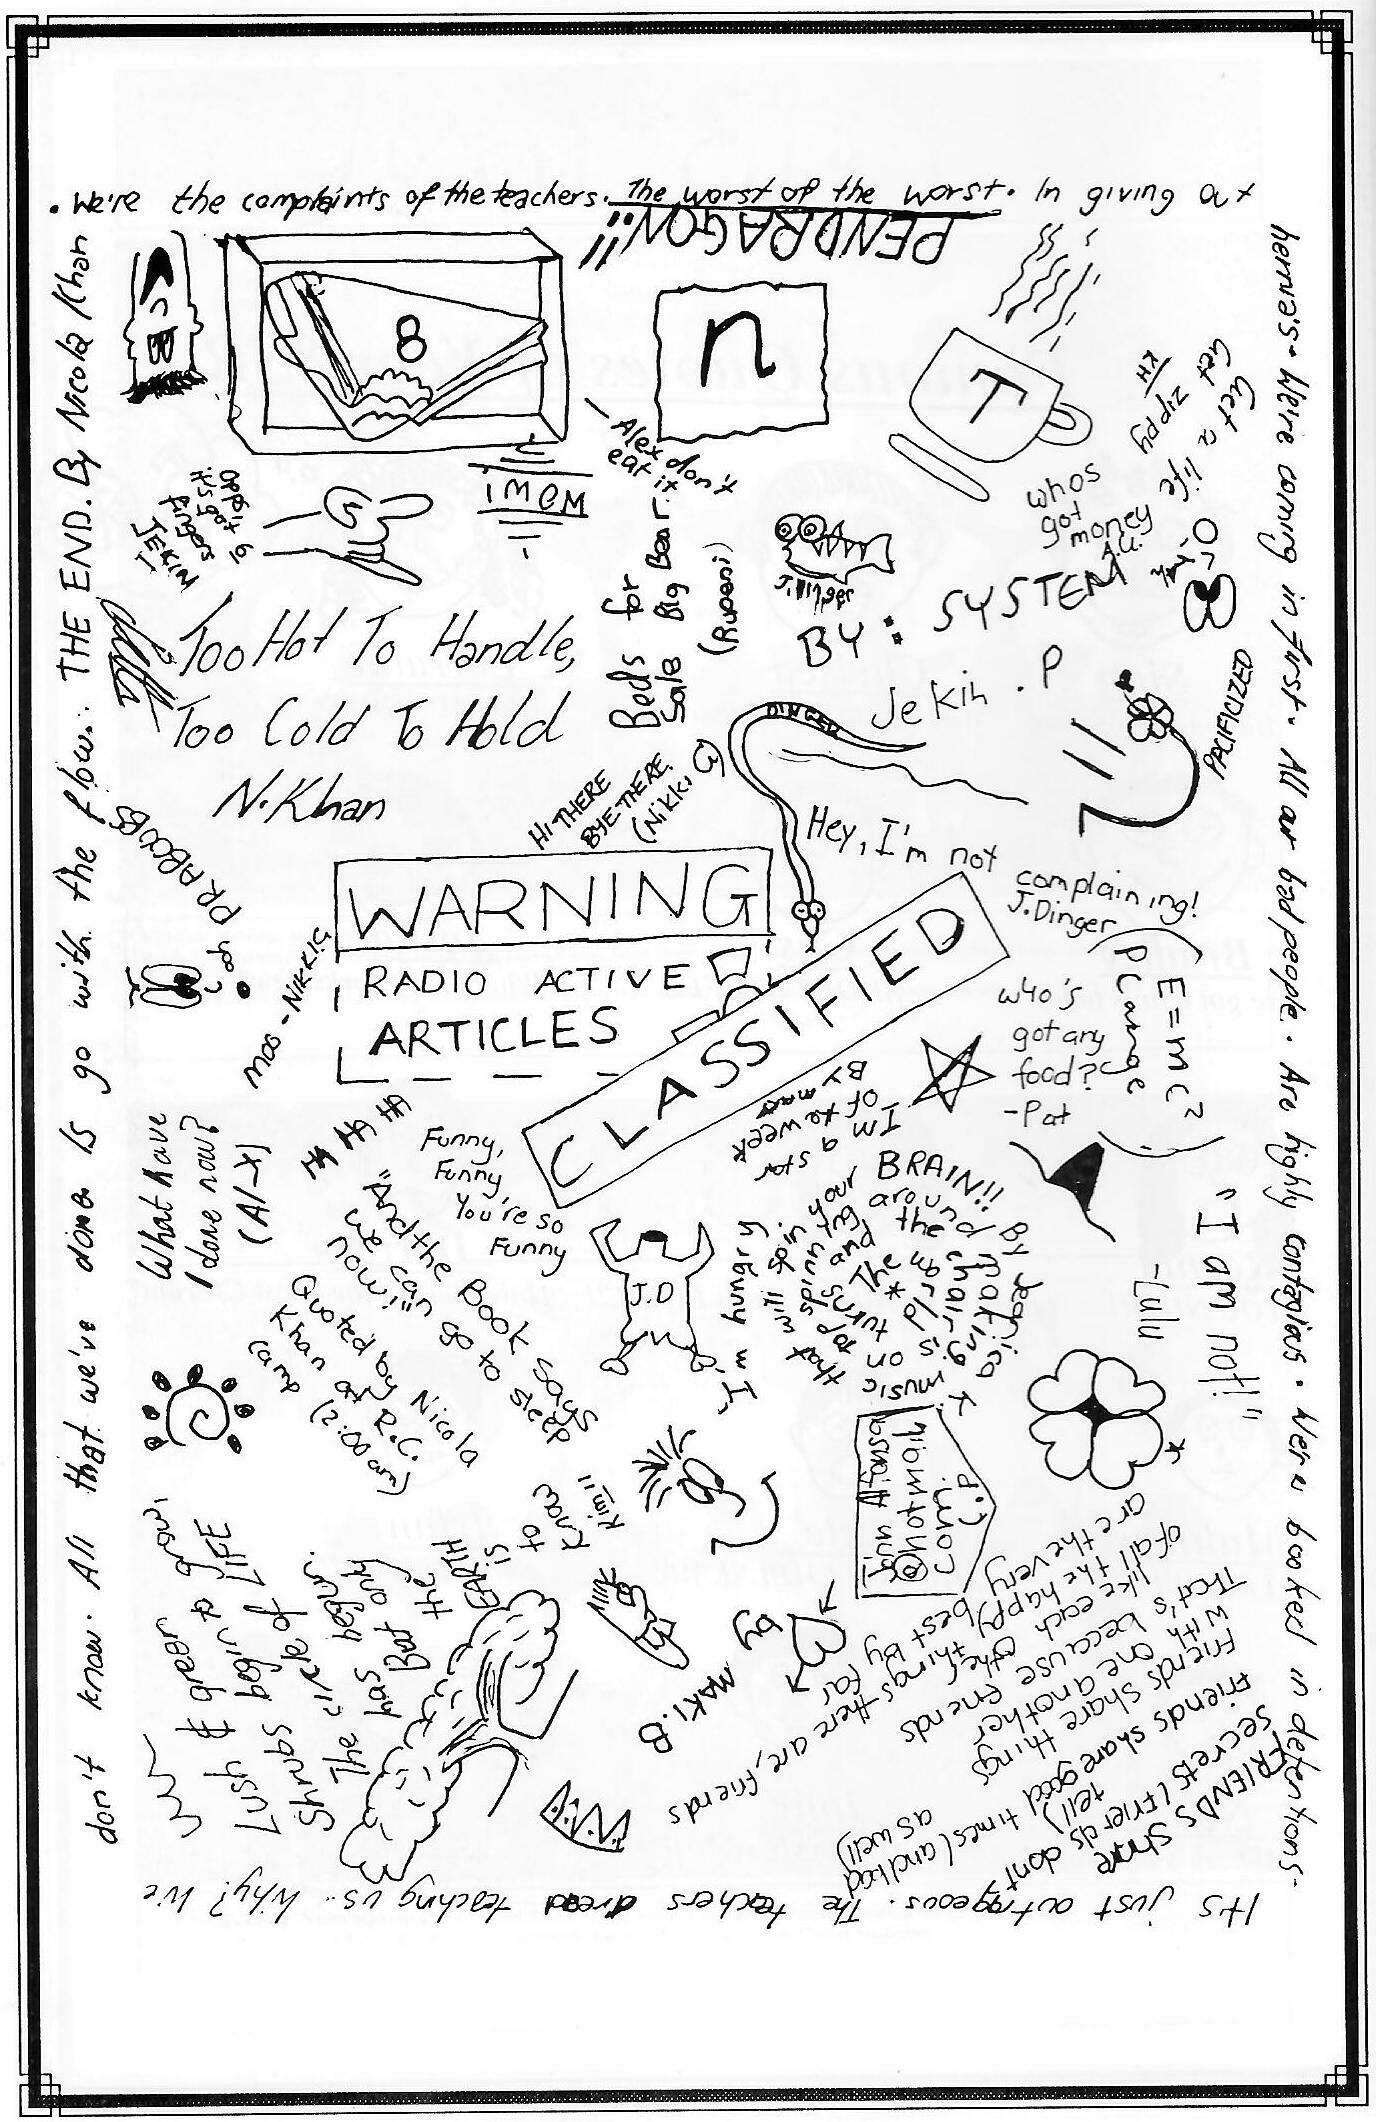 . We're the complaints of the teachers. The worst of the worst. In giving out
hernia's. We're coming in first. All our bad people. Are highly contagious. We're booked in detentions.
It's just outrageous. The teachers dread teaching us. Why? We
don't know. All that we've done is go with the flow.. THE END. By Nicola Khan
PENDRAGON!!
8
n
T
Alex don't
eat it
IMEM
opps it
it's got 6
fingers
JEKIN
Too Hot To Handle,
Too Cold To Hold
N.Khan
Beds for
Sale Big Bear.
(Rupeni)
J.Dinger
BY: SYSTEM
A.U.
whos
got
money
Get a life
Get zippy
KH
Jekin . P
PACIFICIZED
DINGER
HI THERE
BYE-THERE.
(Nikki G)
Hey, I'm not
complaining!
J.Dinger
WARNING
RADIO ACTIVE
ARTICLES
CLASSIFIED
Moo - NIKKI G
(E=mc²
P Carage
)
who's
got any
food?
-Pat
I'm a star
of te week
By mars
What have
I done now?
(Al-x)
HA HA HA
Funny,
Funny
You're so
Funny
"And the Book says
we can go to sleep
now!"
Quoted by Nicola
Khan at R.C.
camp (2:00am)
J.D
I'm hungry
The world is
turns and
that will spin in your BRAIN!!
By Jearica K.
"I am not!"
-Lulu
Kim!!
Know
to
is
EARTH
the
But only
has begun.
The circle of LIFE
Shrubs begin to grow,
Lush & green
by
MAKI.B
FRIENDS share
secrets (friends dont
tell)
Friends share good times (and bad
as well)
Friends share things
with one another
That's because friends
like each other
of all the happy things there are, friends
are the very best by far